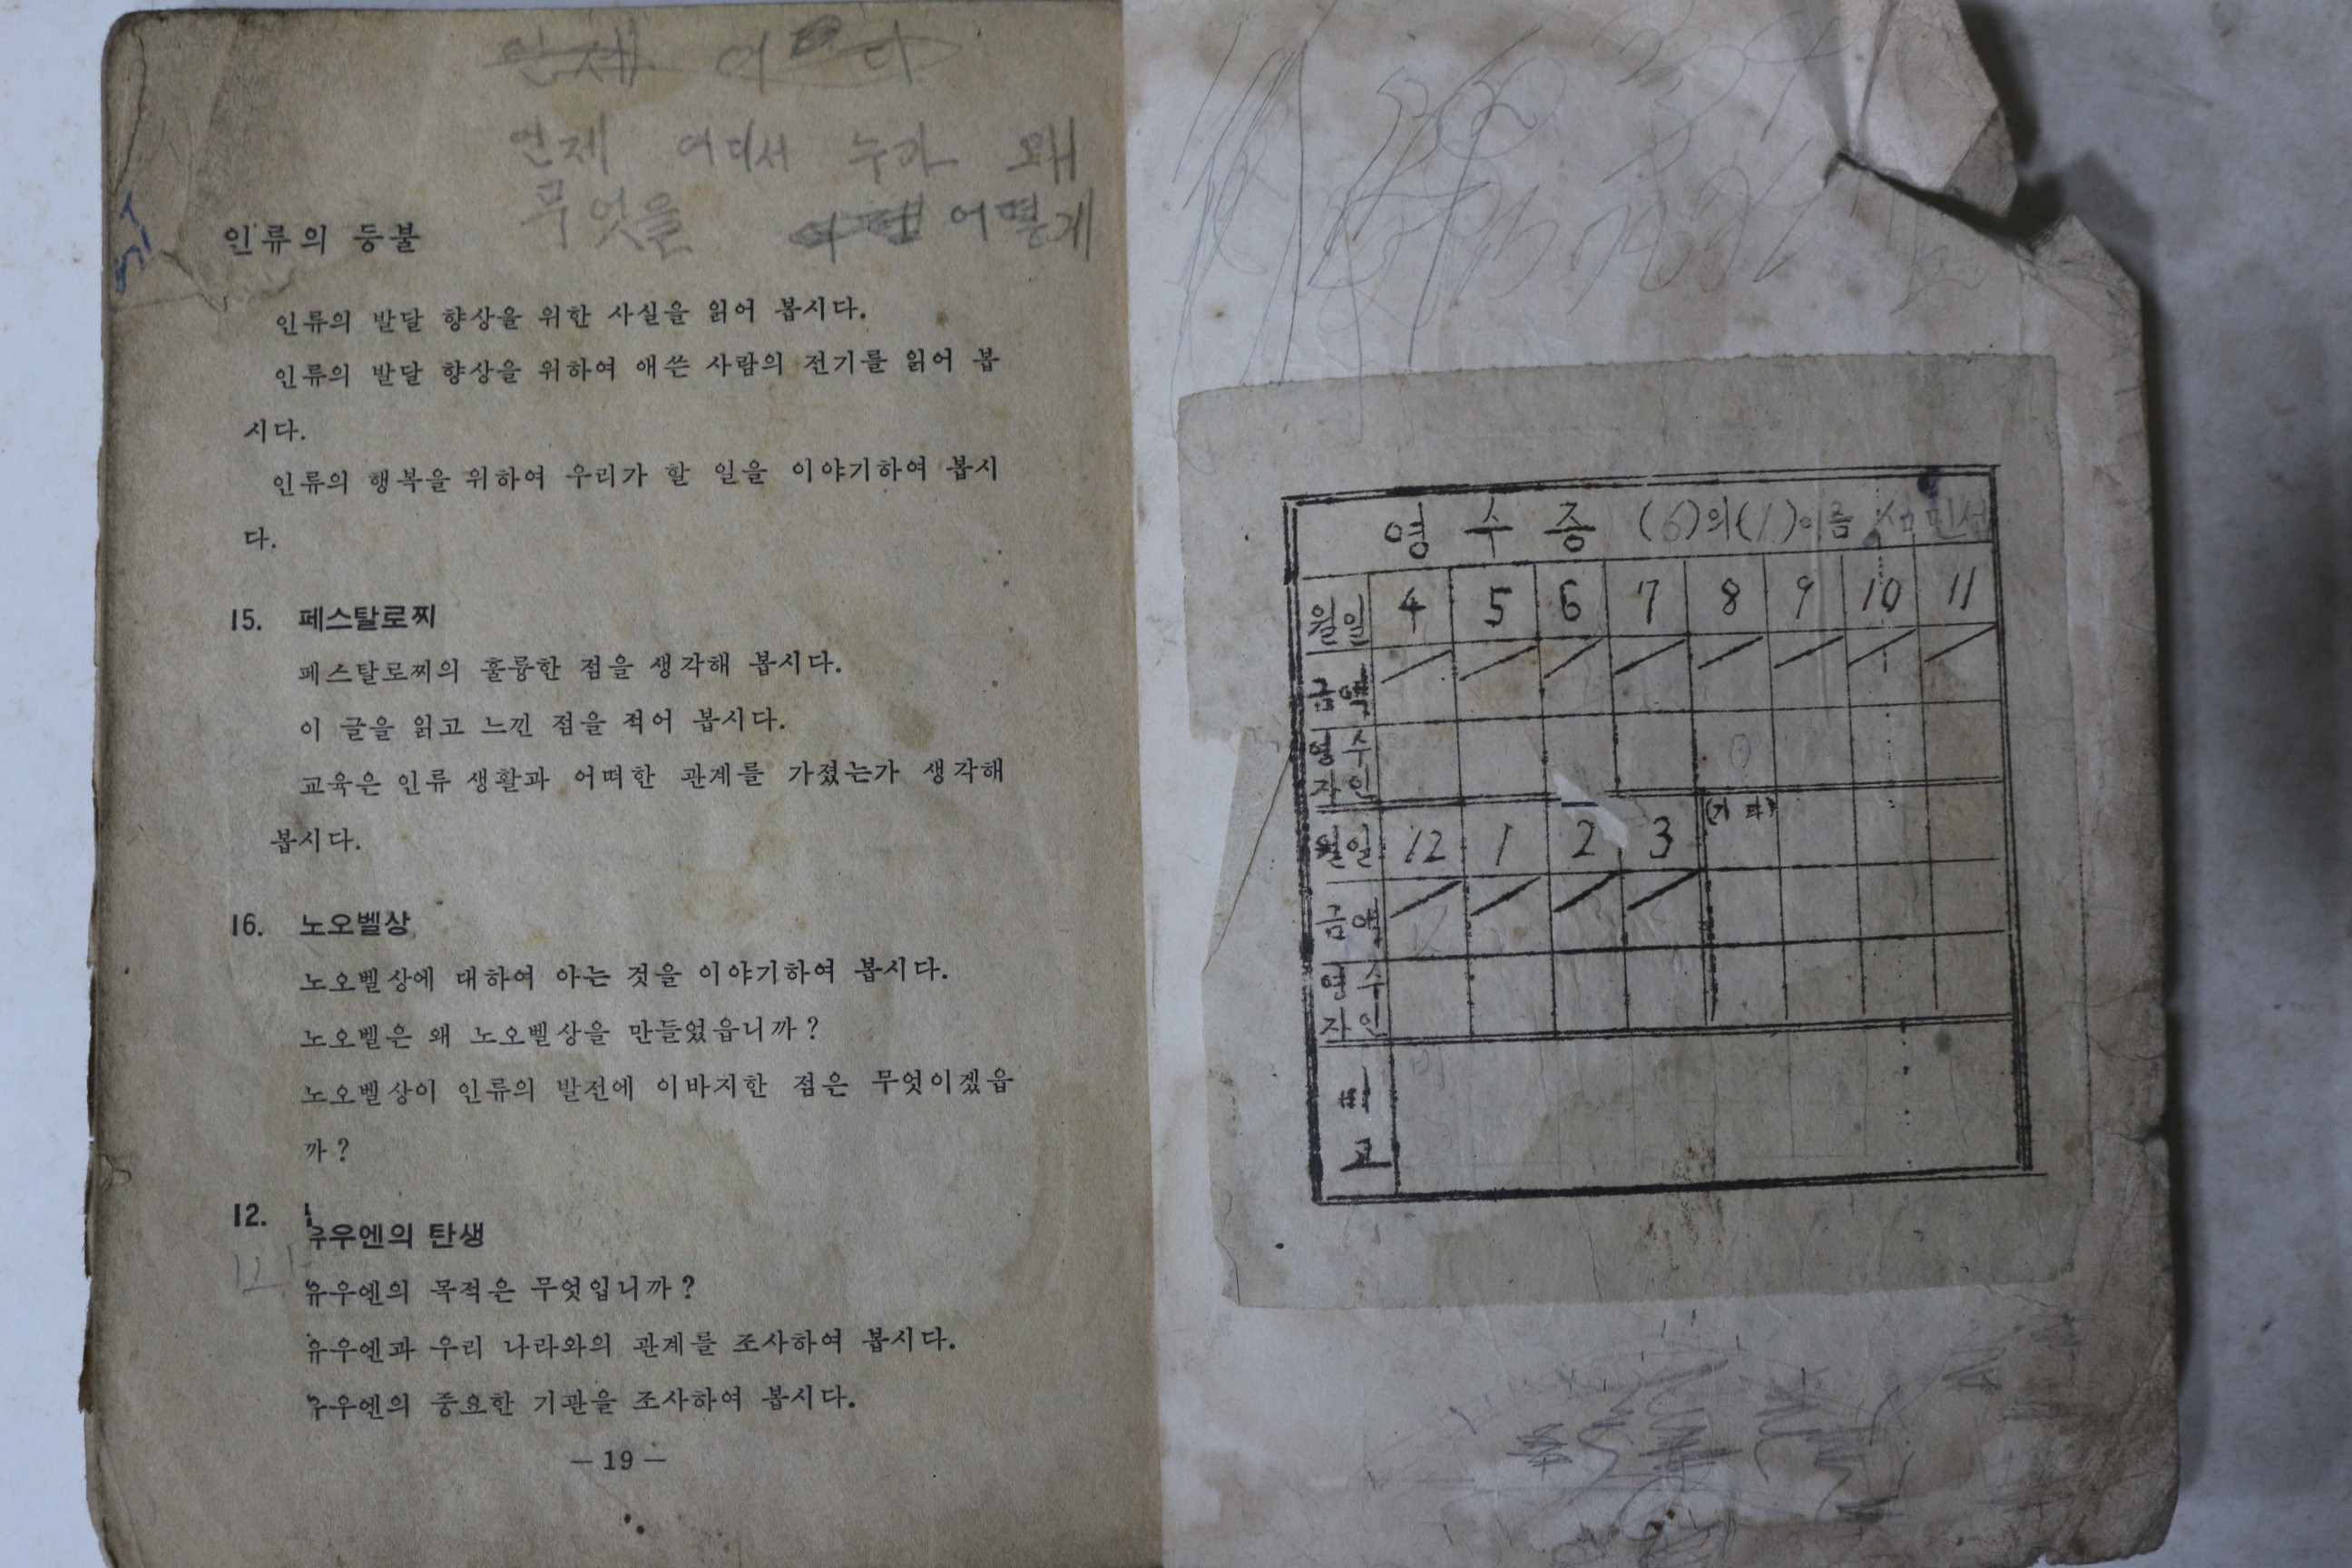 언제 어디서 누가 왜
무엇을 어떻게
인류의 등불
인류의 발달 향상을 위한 사실을 읽어 봅시다.
인류의 발달 향상을 위하여 애쓴 사람의 전기를 읽어 봅
시다.
인류의 행복을 위하여 우리가 할 일을 이야기하여 봅시
다.
15. 페스탈로찌
페스탈로찌의 훌륭한 점을 생각해 봅시다.
이 글을 읽고 느낀 점을 적어 봅시다.
교육은 인류 생활과 어떠한 관계를 가졌는가 생각해
봅시다.
16. 노오벨상
노오벨상에 대하여 아는 것을 이야기하여 봅시다.
노오벨은 왜 노오벨상을 만들었읍니까?
노오벨상이 인류의 발전에 이바지한 점은 무엇이겠읍
까?
12. 유우엔의 탄생
유우엔의 목적은 무엇입니까?
유우엔과 우리 나라와의 관계를 조사하여 봅시다.
유우엔의 중요한 기관을 조사하여 봅시다.
— 19 —
영 수 증 (6)의(1)이름
월일 4 5 6 7 8 9 10 11
금액
영수
자인
월일 12 1 2 3 (기타)
금액
영수
자인
비
고